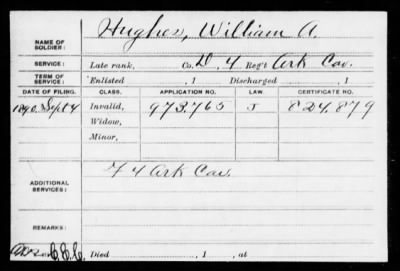 NAME OF SOLDIER: Hughes, William A.
SERVICE: Late rank, Co. D, 4 Reg't Ark Cav.
TERM OF SERVICE: Enlisted , 1 Discharged , 1
DATE OF FILING. CLASS. APPLICATION NO. LAW. CERTIFICATE NO.
1890. Sept 4 Invalid, 973.765 J 824.879
Widow,
Minor,
ADDITIONAL SERVICES: F 4 Ark Cav.
REMARKS:
C.E.C. Died , 1 , at